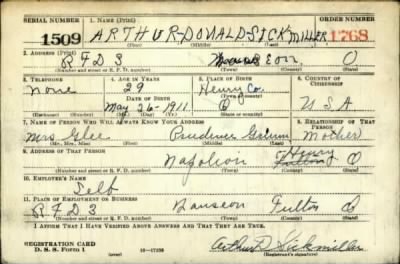 SERIAL NUMBER 1. NAME (Print) ORDER NUMBER
1509 ARTHUR DONALD SICKMILLER 1768
(First) (Middle) (Last)
2. ADDRESS (Print)
R F D 3 O
(Number and street or R. F. D. number) (Town) (County) (State)
3. TELEPHONE 4. AGE IN YEARS 5. PLACE OF BIRTH 6. COUNTRY OF CITIZENSHIP
None 29 Henry Co.
DATE OF BIRTH
May 26-1911 O U S A
7. NAME OF PERSON WHO WILL ALWAYS KNOW YOUR ADDRESS 8. RELATIONSHIP OF THAT PERSON
Mrs. Glee Prudence Grimm Mother
(Mr., Mrs., Miss) (First) (Middle) (Last)
9. ADDRESS OF THAT PERSON
Napoleon Henry O
(Number and street or R. F. D. number) (Town) (County) (State)
10. EMPLOYER'S NAME
Self
11. PLACE OF EMPLOYMENT OR BUSINESS
R F D 3 Wauseon Fulton O
(Number and street or R. F. D. number) (Town) (County) (State)
I AFFIRM THAT I HAVE VERIFIED ABOVE ANSWERS AND THAT THEY ARE TRUE.
REGISTRATION CARD
D. S. S. Form 1 16—17105 Arthur D Sickmiller
(Registrant's signature)